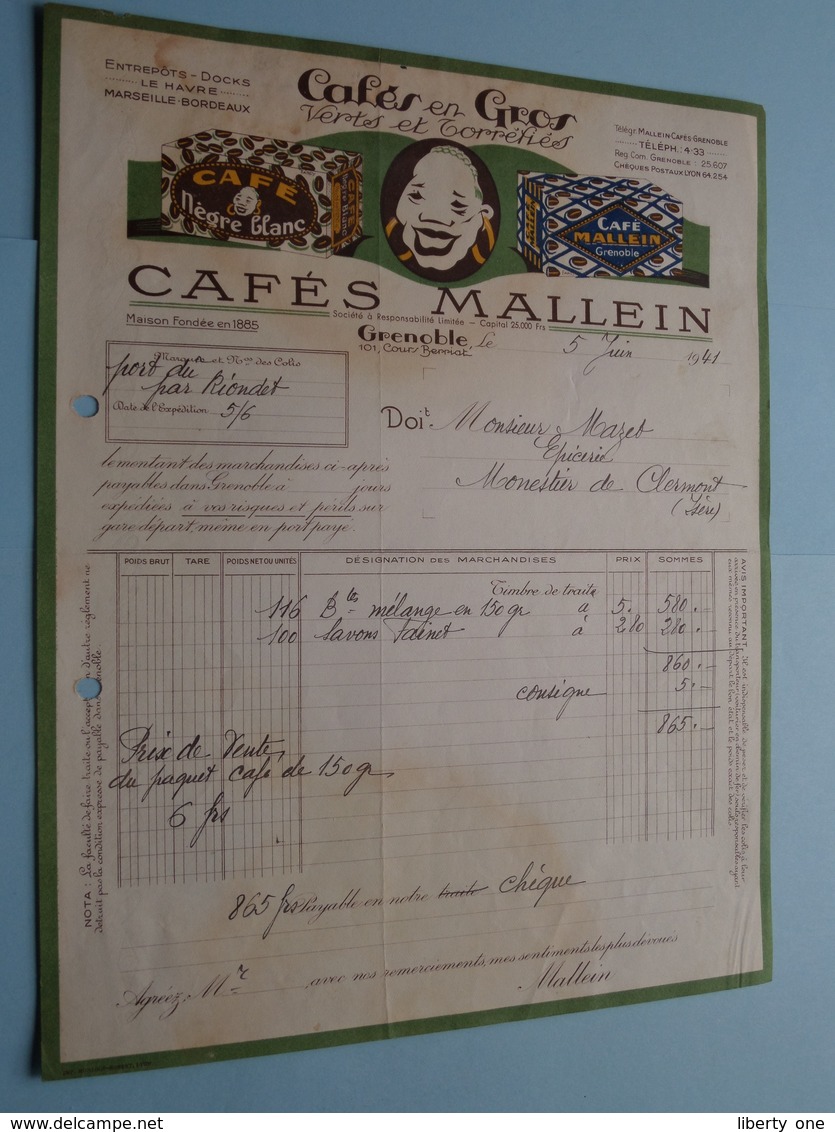 ENTREPÔTS - DOCKS
LE HAVRE
MARSEILLE - BORDEAUX
Cafés en Gros
Verts et Torréfiés
Télégr. MALLEIN CAFÉS-GRENOBLE
TÉLÉPH.: 4-33
Reg. Com. GRENOBLE : 25.607
CHÈQUES POSTAUX LYON 64.254
CAFÉ
Nègre blanc
CAFÉ
Nègre Blanc
CAFÉ
MALLEIN
Grenoble
CAFÉS MALLEIN
Société à Responsabilité Limitée - Capital 25.000 Frs
Maison Fondée en 1885
Grenoble, le 5 Juin 1941
101, Cours Berriat
Marques et Nos des Colis
port du
par Riondet
Date de l'Expédition 5/6
Doit Monsieur Mazet
Epicerie
Monestier de Clermont
(Isère)
le montant des marchandises ci-après
payables dans Grenoble à jours
expédiées à vos risques et périls sur
gare départ, même en port payé.
POIDS BRUT TARE POIDS NET OU UNITÉS DÉSIGNATION DES MARCHANDISES PRIX SOMMES
Timbre de traite
116 Btes mélange en 150 gr à 5.- 580.-
100 Savons à 2 80 280.-
860.-
consigne 5.-
865.-
Prix de Vente
du paquet café de 150 gr
6 frs
NOTA : La faculté de faire traite ou l'acceptation d'autre règlement ne
détruit pas la condition expresse de payable dans Grenoble.
AVIS IMPORTANT. Il est indispensable de peser et de vérifier les colis à leur
865 frs Payable en notre traite chèque
Agréez, Mr , avec nos remerciements, mes sentiments les plus dévoués
Mallein
www.delcampe.net
liberty one